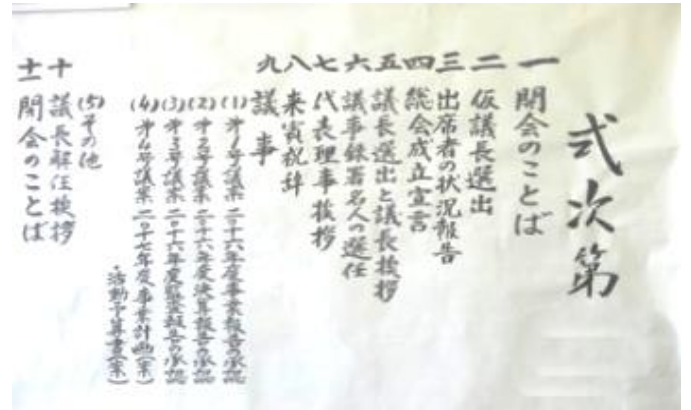 式次第
一 開会のことば
二 仮議長選出
三 出席者の状況報告
四 総会成立宣言
五 議長選出と議長挨拶
六 議事録署名人の選任
七 代表理事挨拶
八 来賓祝辞
九 議事
(1) 才1号議案 二〇一六年度事業報告の承認
(2) 才2号議案 二〇一六年度決算報告の承認
(3) 才3号議案 二〇一六年度監査報告の承認
(4) 才4号議案 二〇一七年度事業計画(案)
・活動予算書(案)
(5) その他
十 議長解任挨拶
十一 閉会のことば